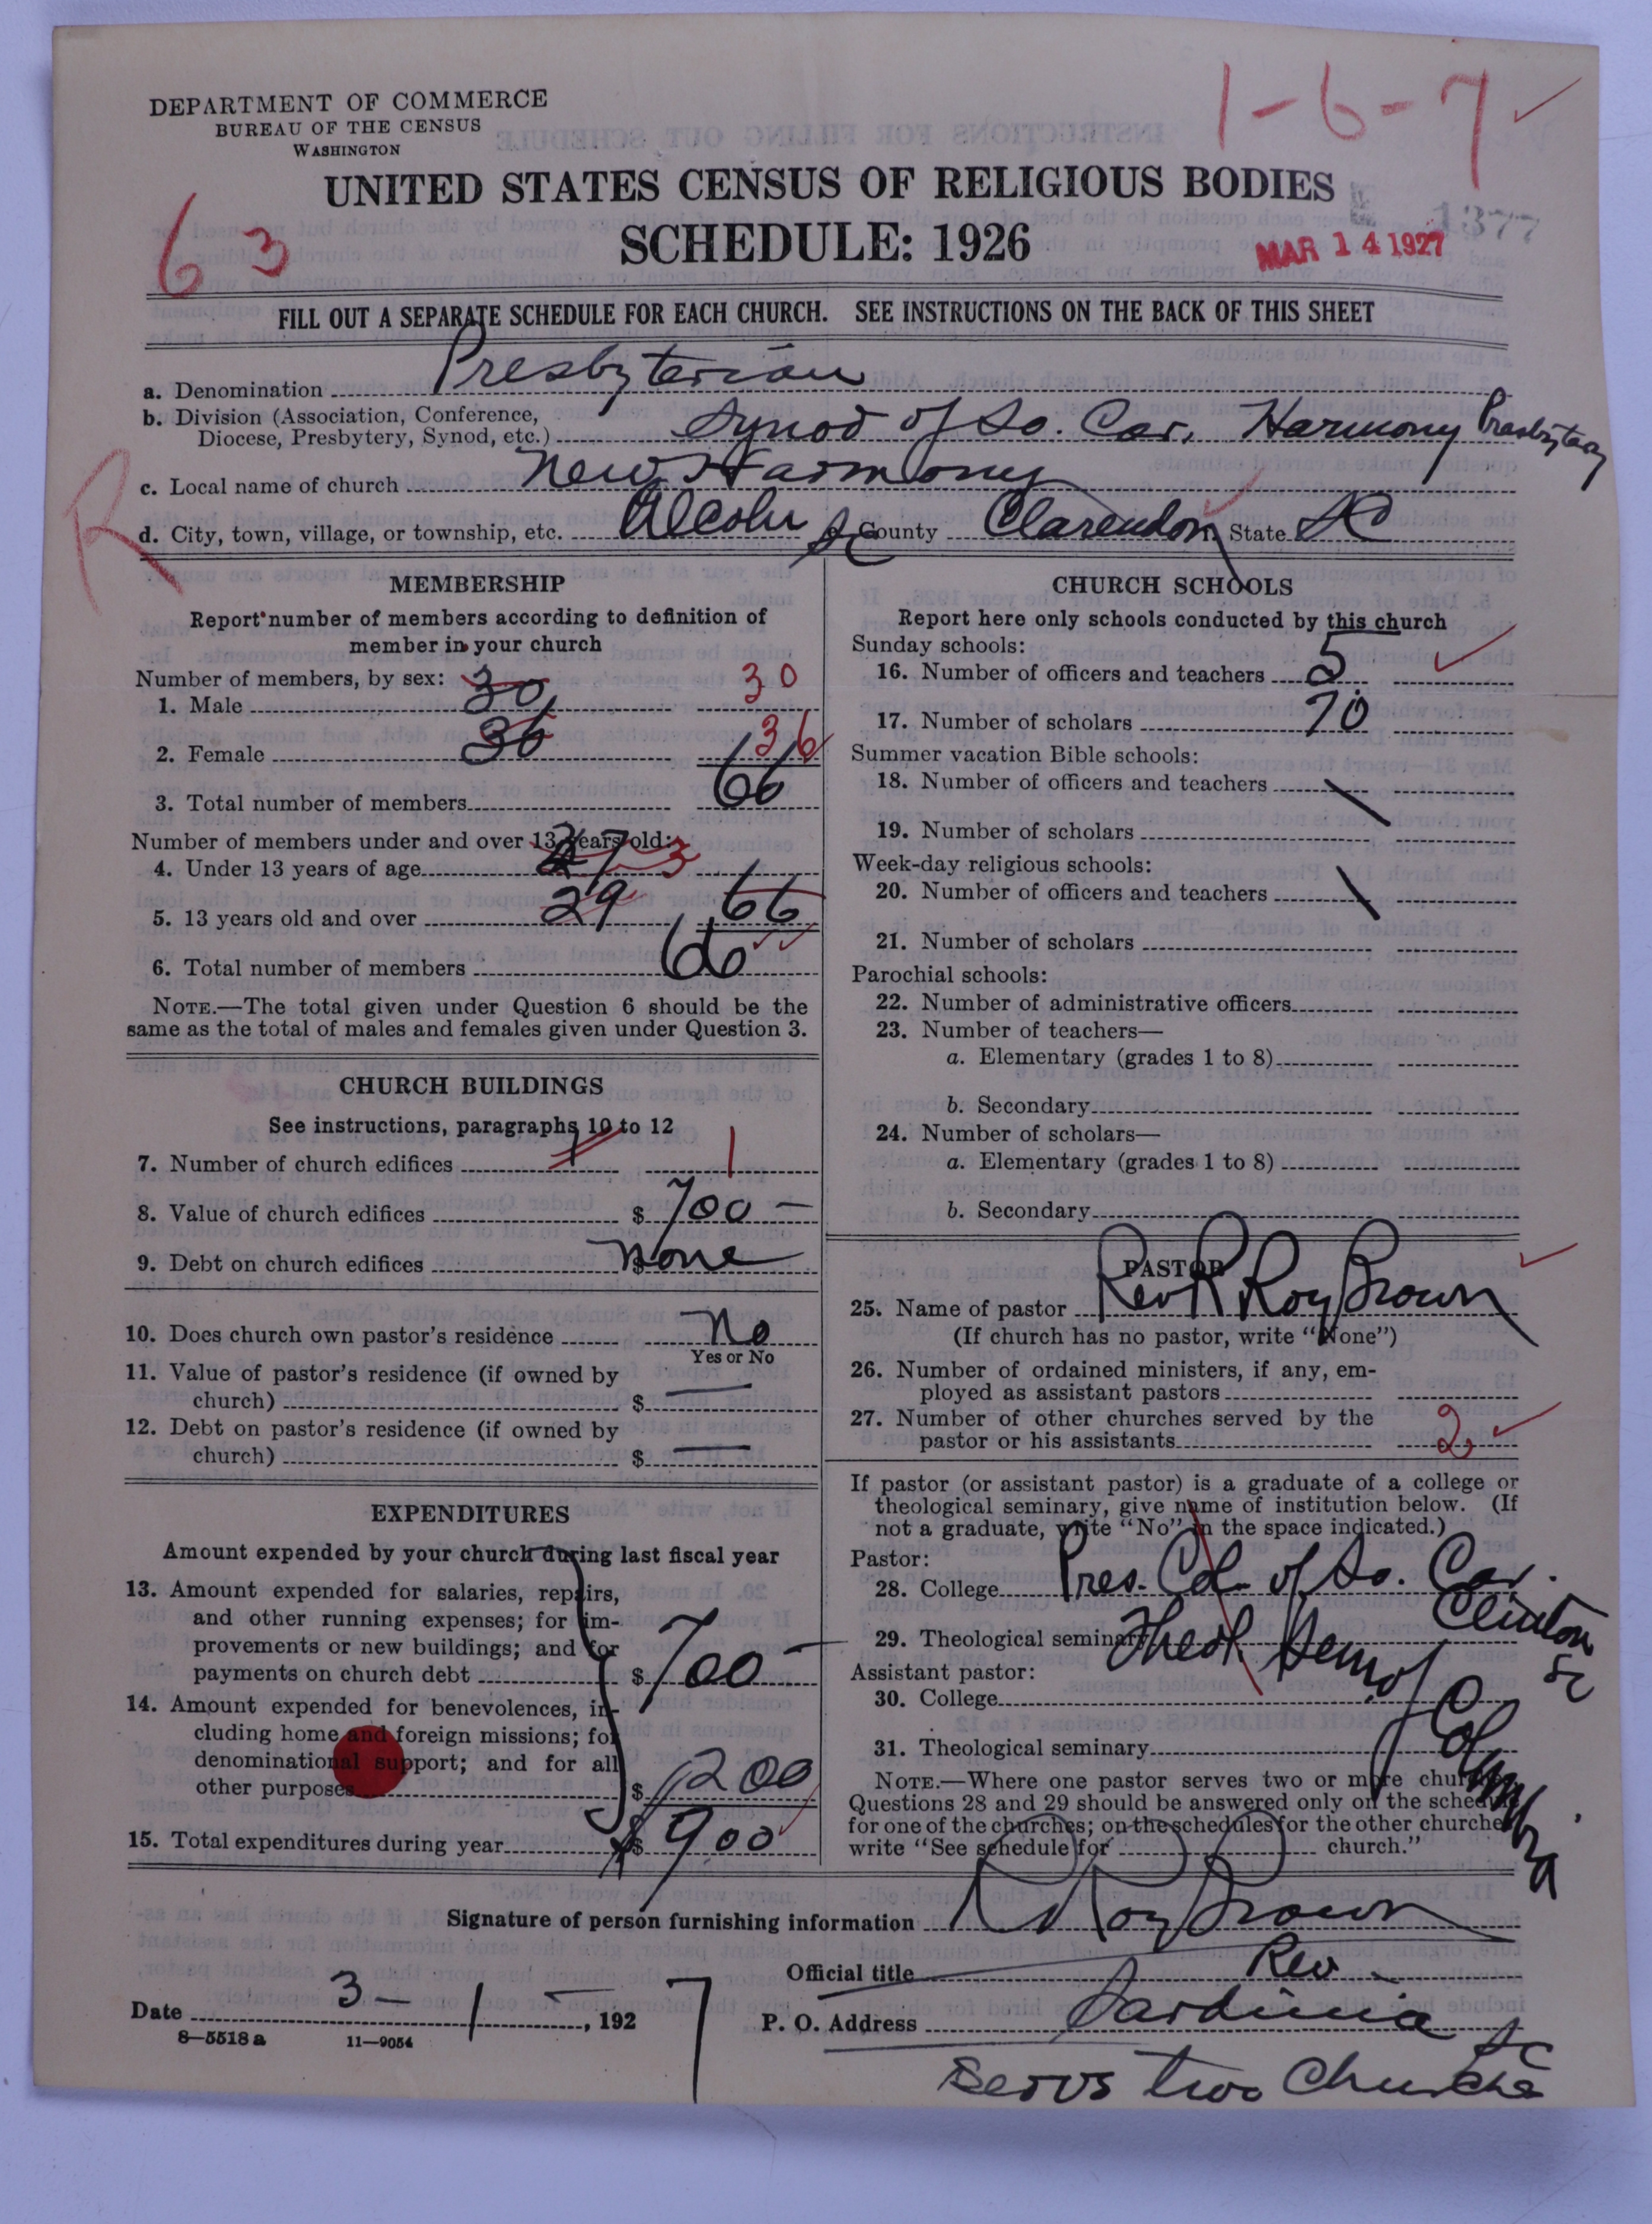 DEPARTMENT OF COMMERCE
BUREAU OF THE CENSUS
WASHINGTON
1-6-7
UNITED STATES CENSUS OF RELIGIOUS BODIES
SCHEDULE: 1926
63
1377
MAR 14 1927
FILL OUT A SEPARATE SCHEDULE FOR EACH CHURCH. SEE INSTRUCTIONS ON THE BACK OF THIS SHEET
a. Denomination Presbyterian
b. Division (Association, Conference,
Diocese, Presbytery, Synod, etc.) Synod of So. Car. Harmony Presbytery
c. Local name of church New Harmony
R
d. City, town, village, or township, etc. Alcolu SC County Clarendon State SC
MEMBERSHIP
Report number of members according to definition of
member in your church
Number of members, by sex:
1. Male 30 30
2. Female 36 36
3. Total number of members 66
Number of members under and over 13 years old:
4. Under 13 years of age 3
5. 13 years old and over 29 66
6. Total number of members 66
NOTE.—The total given under Question 6 should be the
same as the total of males and females given under Question 3.
CHURCH BUILDINGS
See instructions, paragraphs 10 to 12
7. Number of church edifices 1 1
8. Value of church edifices $ 700 —
9. Debt on church edifices $ none
10. Does church own pastor's residence No
Yes or No
11. Value of pastor's residence (if owned by
church) $ —
12. Debt on pastor's residence (if owned by
church) $ —
EXPENDITURES
Amount expended by your church during last fiscal year
13. Amount expended for salaries, repairs,
and other running expenses; for im-
provements or new buildings; and for
payments on church debt $ 700 —
14. Amount expended for benevolences, in-
cluding home and foreign missions; for
denominational support; and for all
other purposes $ 200
15. Total expenditures during year $ 900
CHURCH SCHOOLS
Report here only schools conducted by this church
Sunday schools:
16. Number of officers and teachers 5
17. Number of scholars 70
Summer vacation Bible schools:
18. Number of officers and teachers \
19. Number of scholars
Week-day religious schools:
20. Number of officers and teachers \
21. Number of scholars
Parochial schools:
22. Number of administrative officers
23. Number of teachers—
a. Elementary (grades 1 to 8)
b. Secondary
24. Number of scholars—
a. Elementary (grades 1 to 8)
b. Secondary
PASTOR
25. Name of pastor Rev R Roy Brown
(If church has no pastor, write "None")
26. Number of ordained ministers, if any, em-
ployed as assistant pastors
27. Number of other churches served by the
pastor or his assistants 2
If pastor (or assistant pastor) is a graduate of a college or
theological seminary, give name of institution below. (If
not a graduate, write "No" in the space indicated.)
Pastor:
28. College Pres. Col. of So. Car. Clinton SC
29. Theological seminary Theol Sem of Columbia
Assistant pastor:
30. College
31. Theological seminary
NOTE.—Where one pastor serves two or more churches,
Questions 28 and 29 should be answered only on the schedule
for one of the churches; on the schedules for the other churches
write "See schedule for church."
Signature of person furnishing information R Roy Brown
Official title Rev
Date 3 — 1 —, 1927
P. O. Address Sardinia SC
8—5518 a 11—9054
Servs two Churches